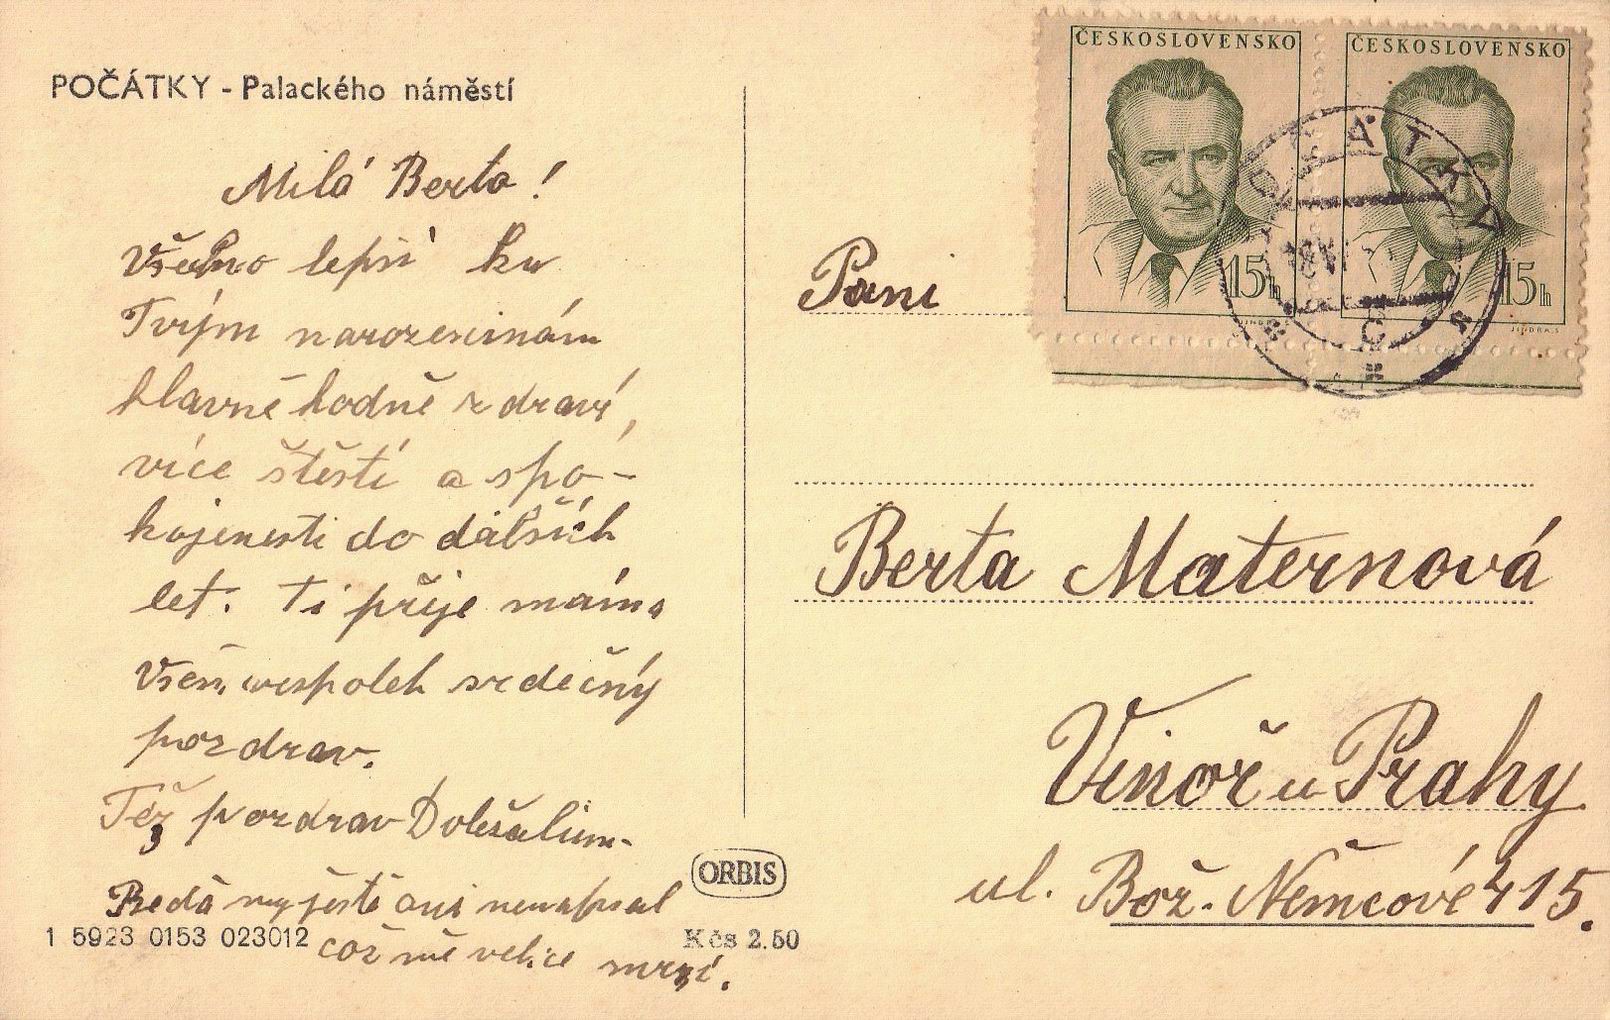 POČÁTKY - Palackého náměstí
Milá Berta!
Všeho lepší ku
Tvým narozeninám
hlavně hodně zdraví,
více štěstí a spo-
kojenosti do dalších
let. Ti přeje máma
Všem vespolek srdečný
pozdrav.
Též pozdrav Doležalům-
ještě ani nenapsal
což mě velice mrzí.
1 5923 0153 023012
ORBIS
Kčs 2.50
ČESKOSLOVENSKO
15h
ČESKOSLOVENSKO
15h
JINDRA S
POČÁTKY
Paní
Berta Maternová
Vinoř u Prahy
ul. Bož. Němcové 415.